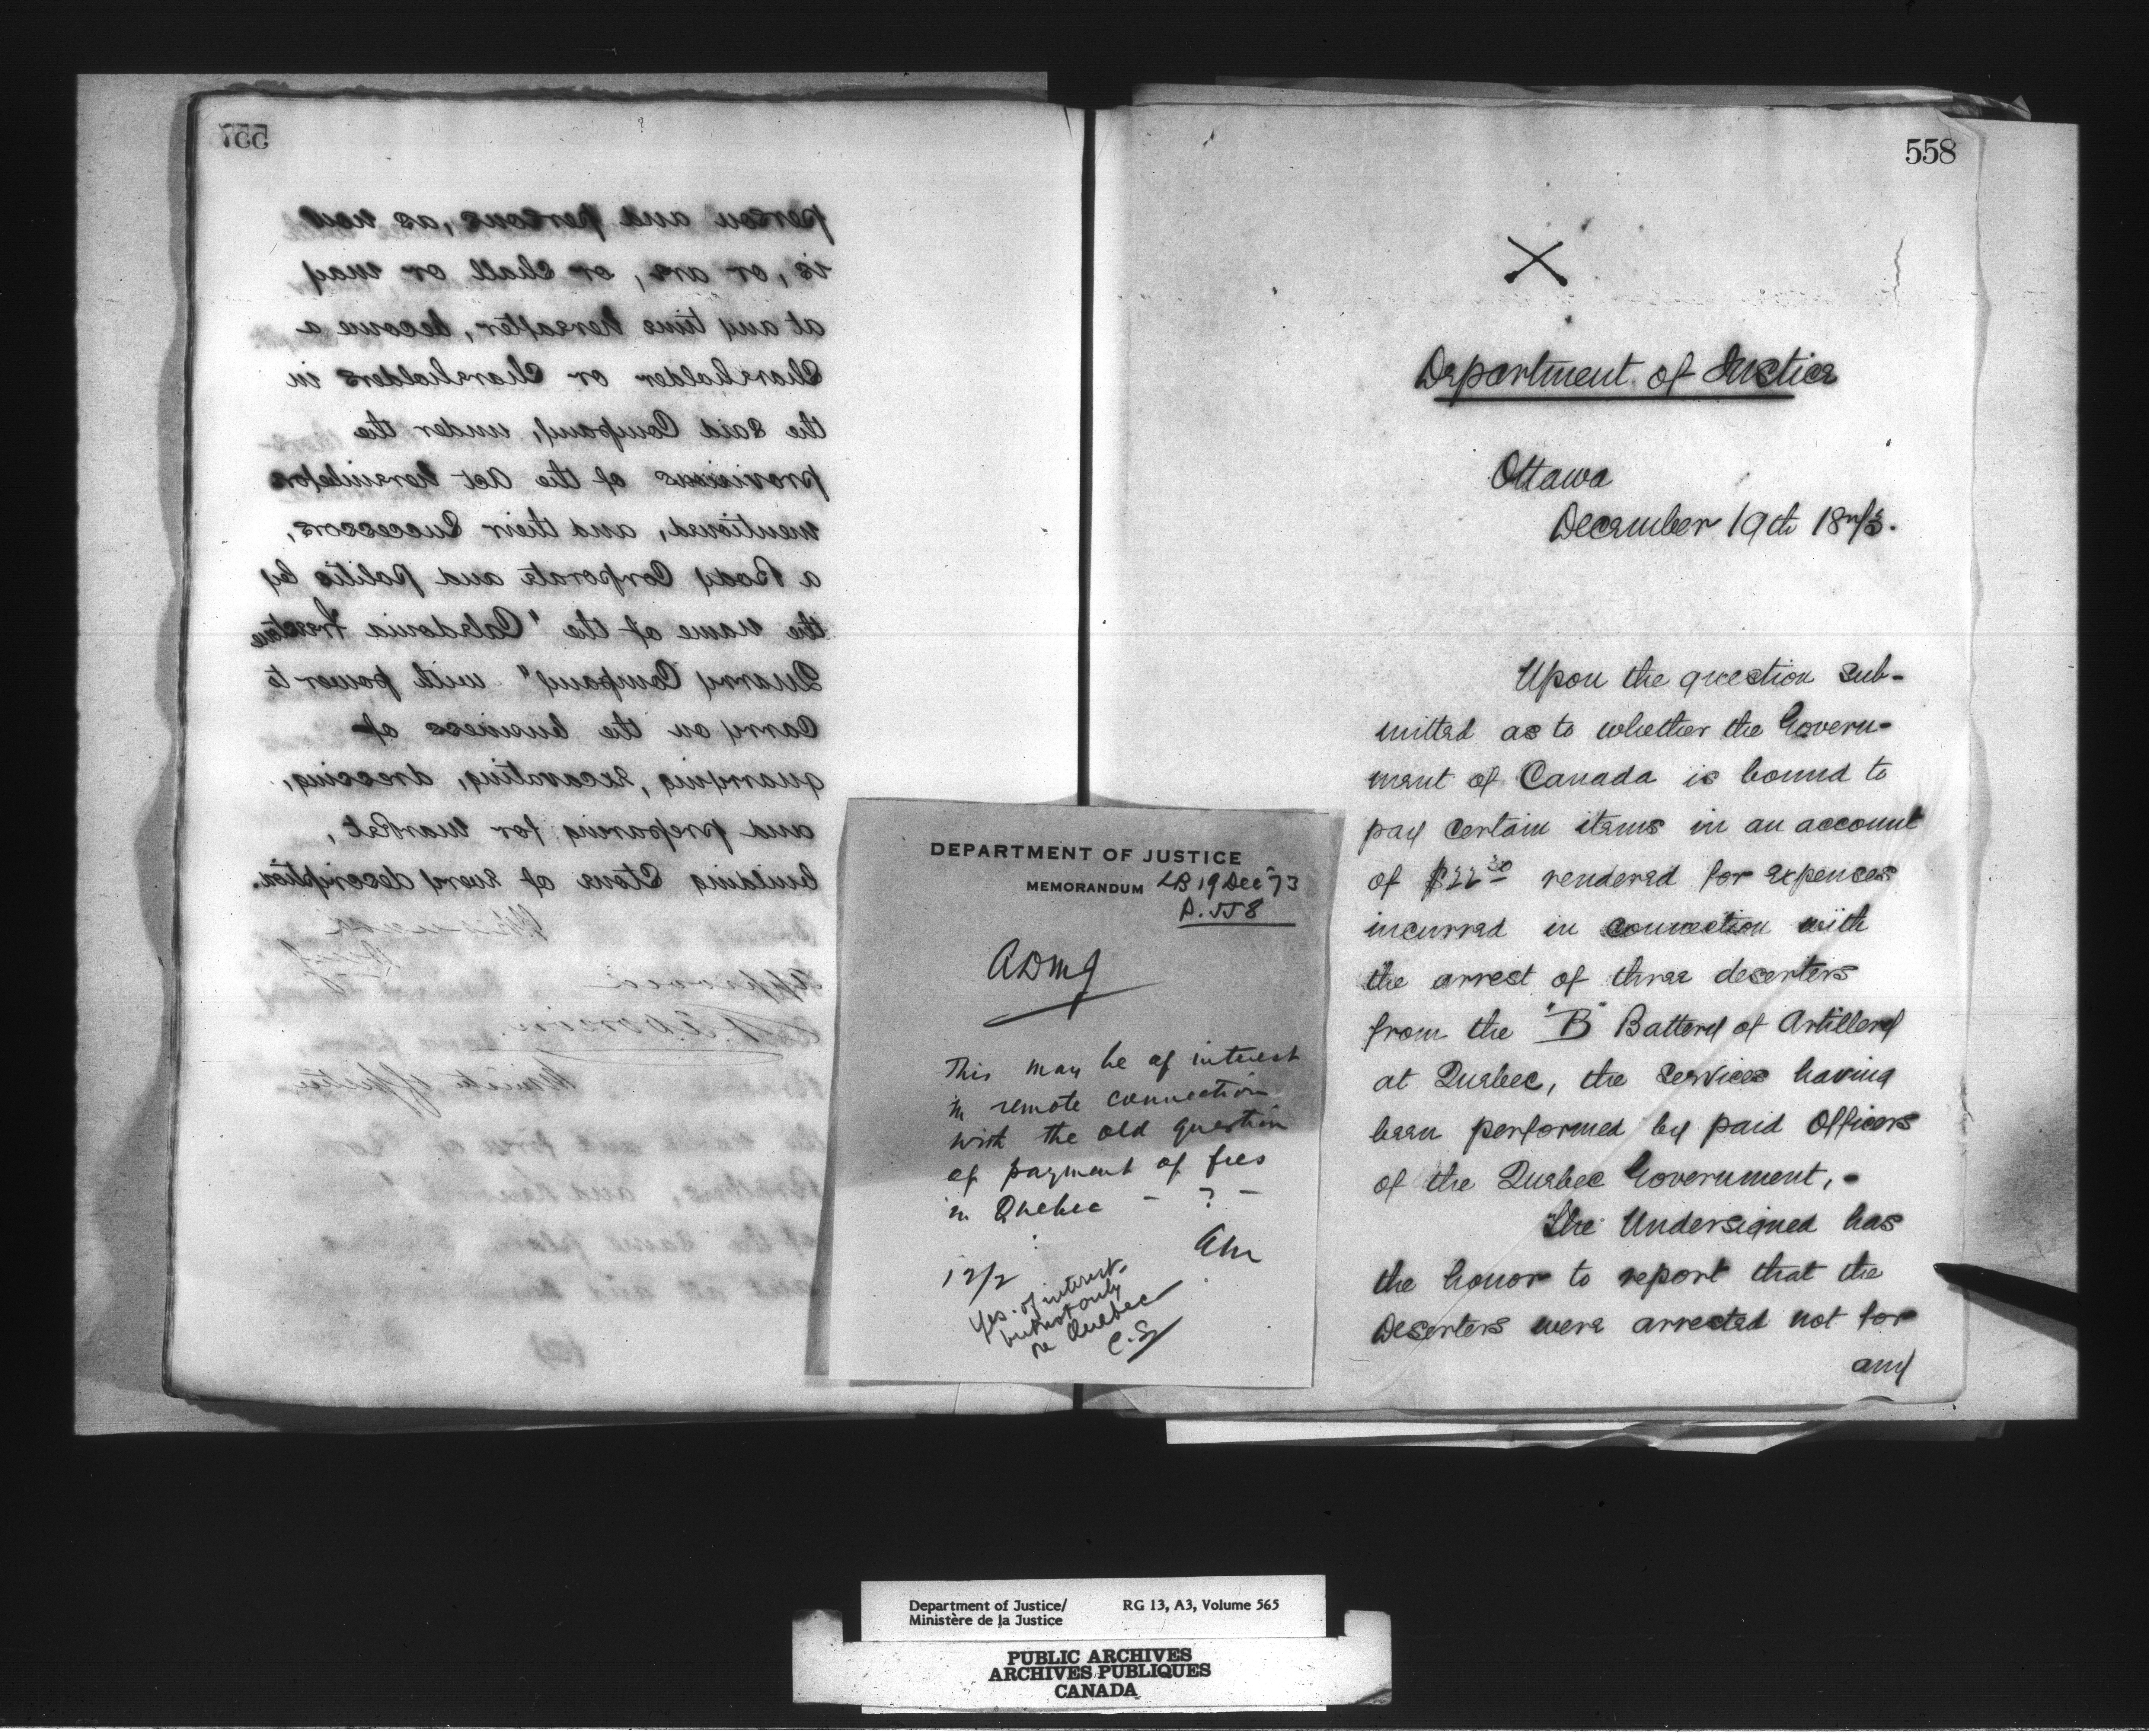 557
person and persons, as now
is, or are, or shall or may
at any time hereafter, become a
Shareholder or Shareholders in
the said Company, under the
provisions of the Act hereinbefore
mentioned, and their Successors,
a Body Corporate and politic by
the name of the "Caledonia Freestone
Quarry Company" with power to
Carry on the business of
quarrying, excavating, dressing,
and preparing for market,
building Stone of every description.
Approved
Minister of Justice
DEPARTMENT OF JUSTICE
MEMORANDUM LB 19 Dec 73
p. 558
ADMJ
This may be of interest
in remote connection
with the old question
of payment of fees
in Quebec - ? -
12/2
Yes. of interest.
but not only
re Quebec
C.S.
558
Department of Justice
Ottawa
December 19th 1873.
Upon the question sub-
mitted as to whether the Govern-
ment of Canada is bound to
pay certain items in an account
of $22.30 rendered for expenses
incurred in connection with
the arrest of three deserters
from the "B" Battery of Artillery
at Quebec, the Services having
been performed by paid Officers
of the Quebec Government. -
The Undersigned has
the honor to report that the
Deserters were arrested not for
any
Department of Justice/ RG 13, A3, Volume 565
Ministère de la Justice
PUBLIC ARCHIVES
ARCHIVES PUBLIQUES
CANADA